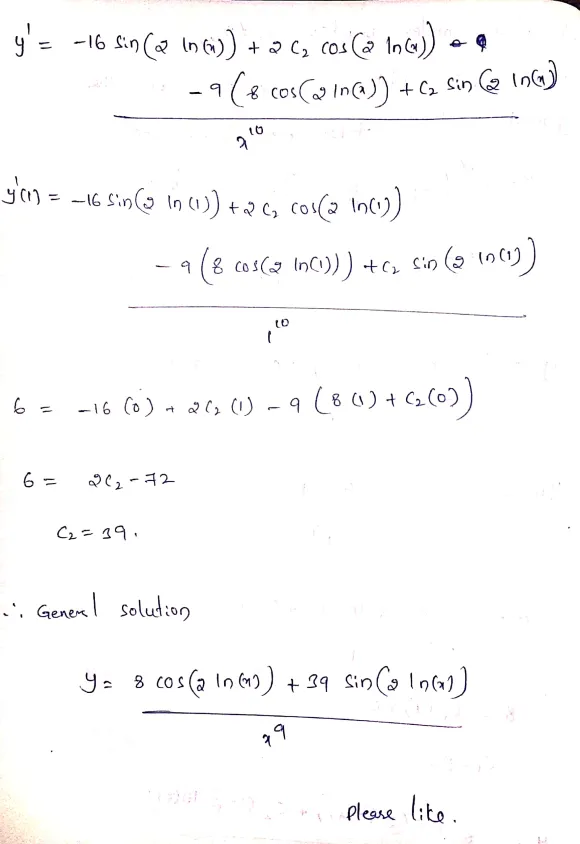 y' = -16 sin(2 ln(x)) + 2 C₂ cos(2 ln(x))
- 9 (8 cos(2 ln(x)) + C₂ sin(2 ln(x))
x¹⁰
y'(1) = -16 sin(2 ln(1)) + 2 C₂ cos(2 ln(1))
- 9 (8 cos(2 ln(1))) + C₂ sin(2 ln(1))
1¹⁰
6 = -16 (0) + 2C₂ (1) - 9 (8 (1) + C₂(0))
6 = 2C₂ - 72
C₂ = 39.
∴ General solution
y = 8 cos(2 ln(x)) + 39 sin(2 ln(x))
x⁹
please like.